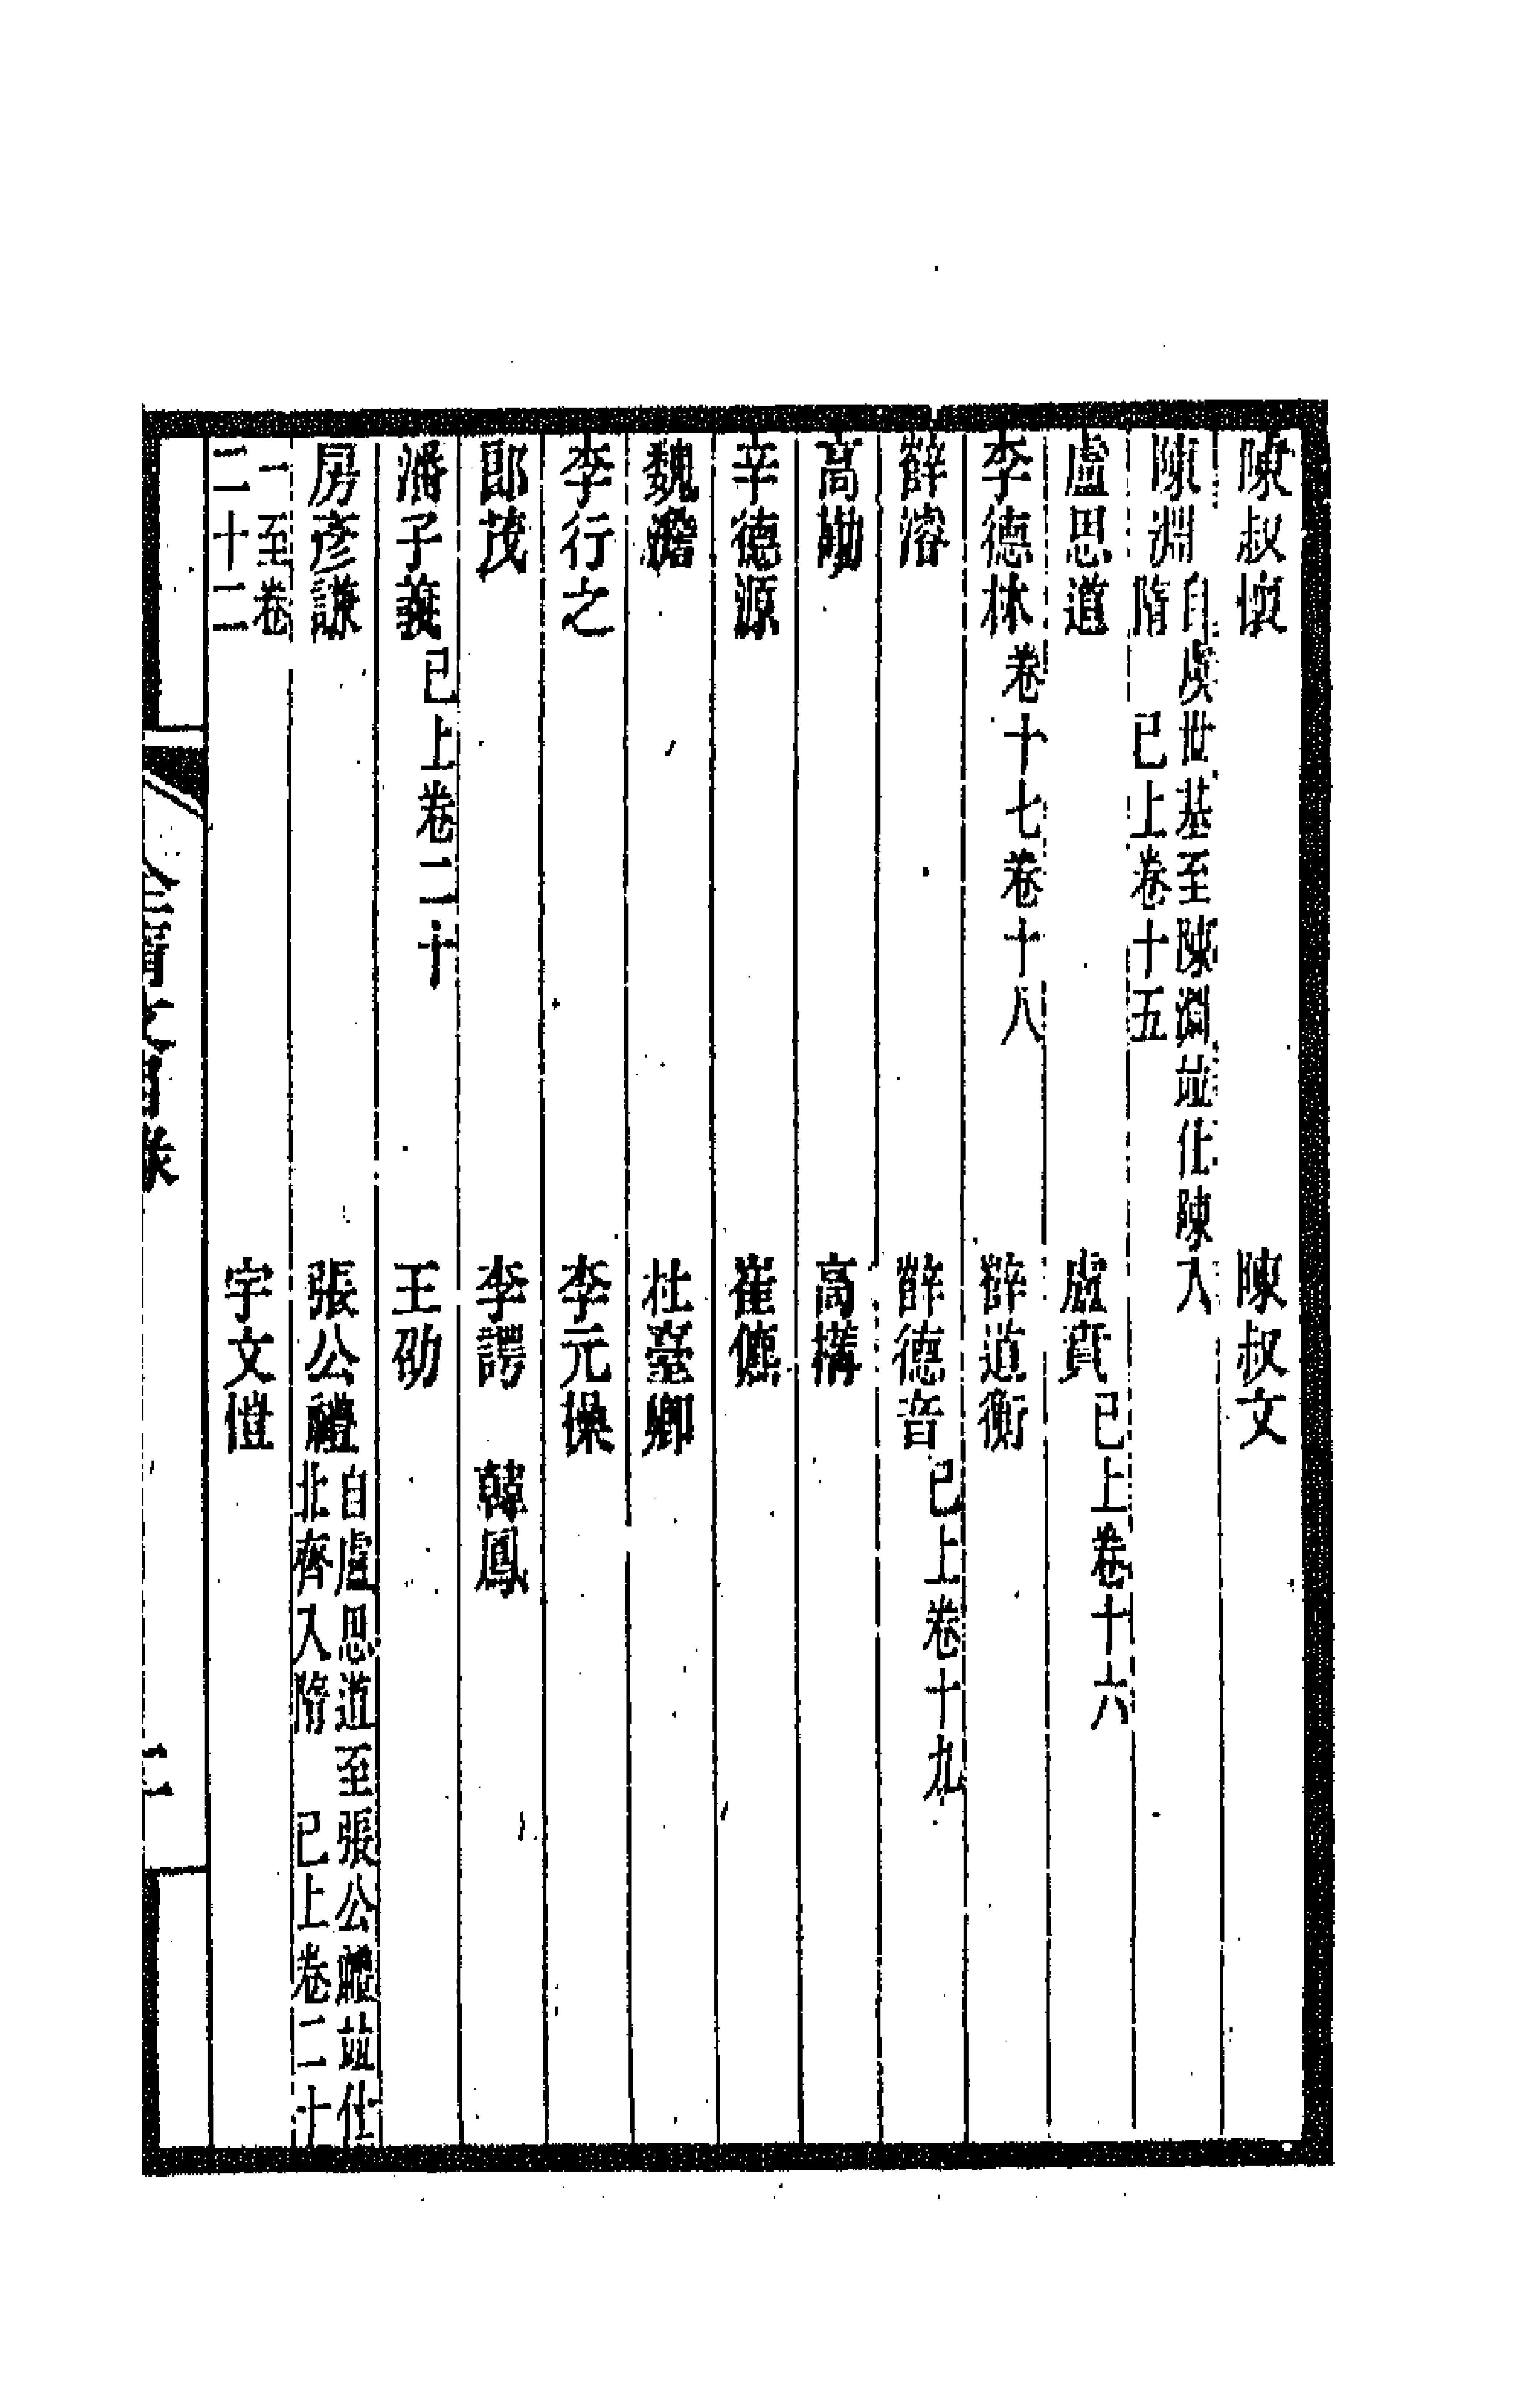 陳叔懷　陳叔文
陳淵自虞世基至陳淵竝仕陳入隋　已上卷十五
盧思道　盧賁已上卷十六
李德林卷十七卷十八　薛道衡
薛濬　薛德音已上卷十九
高勱　高構
辛德源　崔儦
魏澹　杜臺卿
李行之　李元操
郎茂　李諤　韓鳳
潘子義已上卷二十　王劭
房彥謙　張公禮自盧思道至張公禮竝仕北齊入隋　已上卷二十
一至卷二十二　宇文愷
全隋文目錄　二